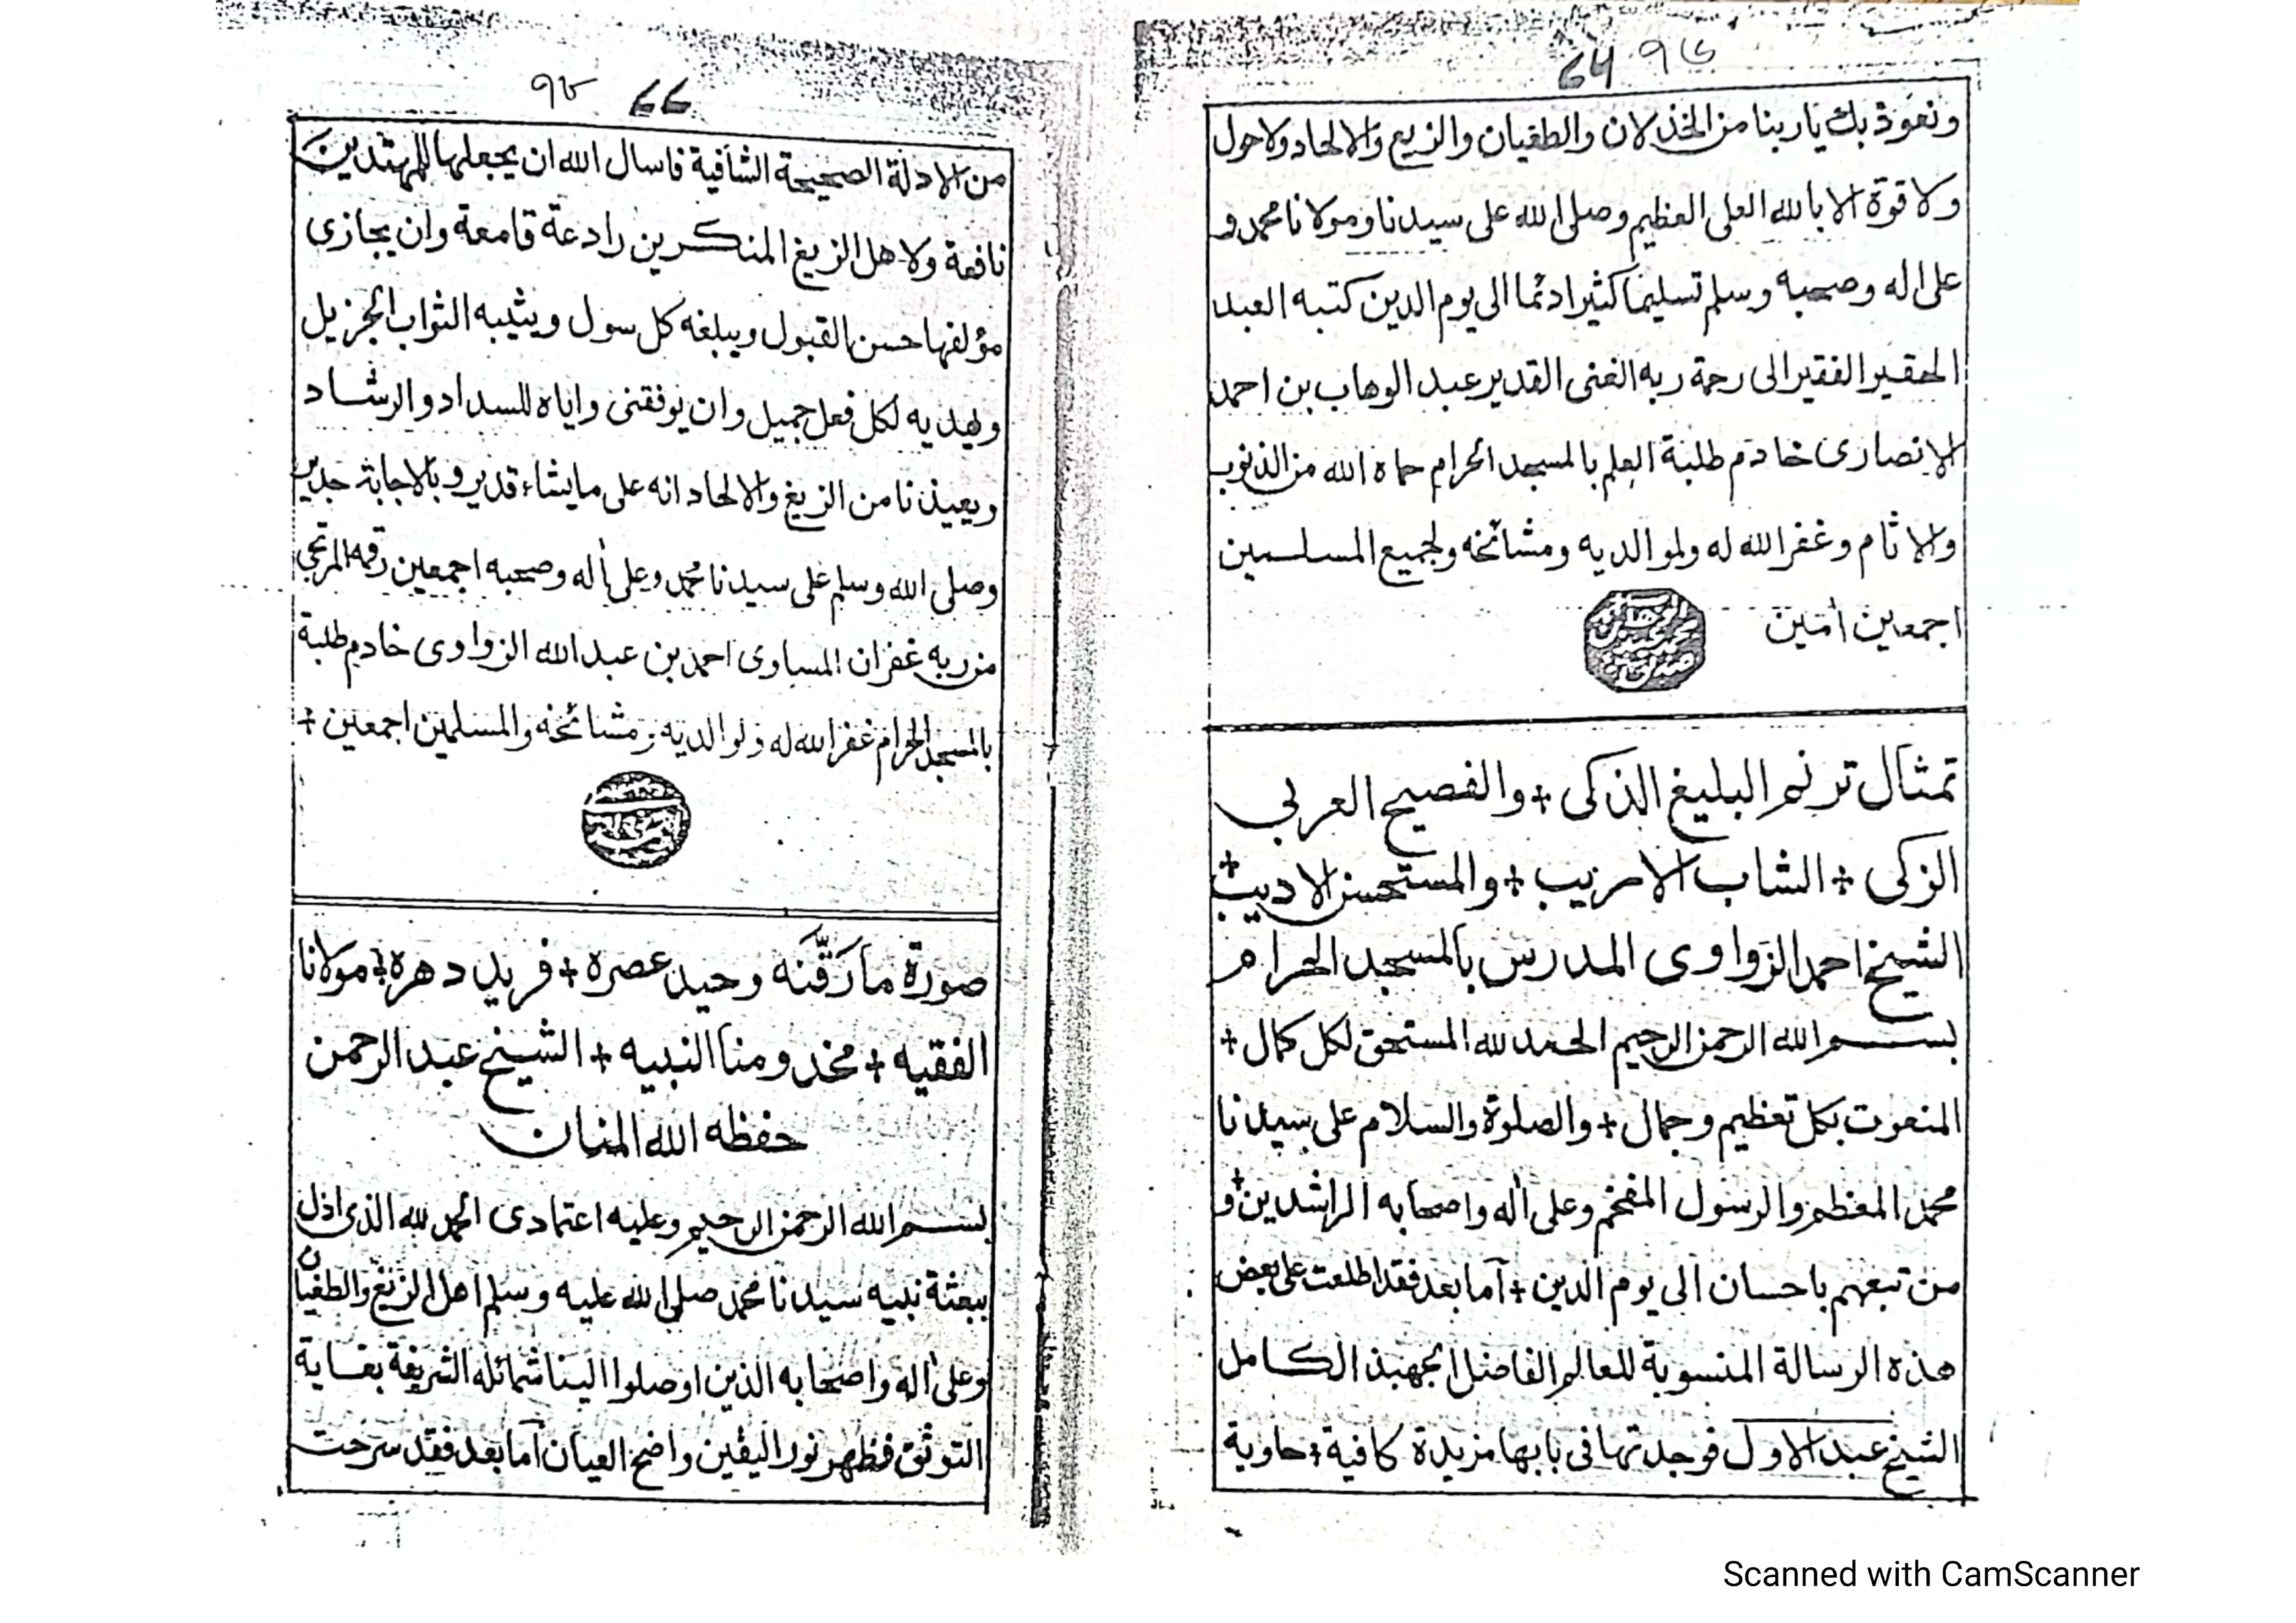 ونعوذ بك يا ربنا من الخذلان والطغيان والزيغ والالحاد ولا حول
ولا قوة الا بالله العلى العظيم وصلى الله على سيدنا ومولانا محمد و
على اله وصحبه وسلم تسليما كثيرا دئما الى يوم الدين كتبه العبد
الحقير الفقير الى رحمة ربه الغنى القدير عبد الوهاب بن احمد
الانصارى خادم طلبة العلم بالمسجد الحرام حماه الله من الذنوب
والاثام وغفر الله له ولوالديه ومشائخه ولجميع المسلمين
اجمعين أمين
تمثال ترنم البليغ الذكى + والفصيح العربي
الزكى + الشاب الاريب + والمستحسن الاديب +
الشيخ احمد الزواوى المدرس بالمسجد الحرام
بسم الله الرحمن الرحيم الحمد لله المستحق لكل كمال +
المنعوت بكل تعظيم وجمال + والصلوة والسلام على سيدنا
محمد المعظم والرسول المفخم وعلى أله واصحابه الراشدين + و
من تبعهم باحسان الى يوم الدين + آما بعد فقد اطلعت على بعض
هذه الرسالة المنسوبة للعالم الفاضل الجهبذ الكامل
الشيخ عبد الاول فوجدتها فى بابها مزيدة كافية + حاوية
من الادلة الصحيحة الشافية فاسال الله ان يجعلها للمهتدين
نافعة ولاهل الزيغ المنكرين رادعة قامعة وان يجازى
مؤلفها حسن القبول ويبلغه كل سول ويثيبه الثواب الجزيل
ويهديه لكل فعل جميل وان يوفقنى واياه للسداد والرشاد
ويعيذنا من الزيغ والالحاد انه على مايشاء قدير وبالاجابة جدير
وصلى الله وسلم على سيدنا محمد وعلى أله وصحبه اجمعين رقمه المرتجي
من ربه غفران المساوى احمد بن عبد الله الزواوى خادم طلبة
بالمسجد الحرام غفر الله له ولوالديه ومشائخه والمسلمين اجمعين +
صورة ما رَقَّنه وحيد عصره + فريد دهره + مولانا
الفقيه + مخدومنا النبيه + الشيخ عبد الرحمن
حفظه الله المنان
بسم الله الرحمن الرحيم وعليه اعتمادى الحمد لله الذى اذل
ببعثة نبيه سيدنا محمد صلى الله عليه وسلم اهل الزيغ والطغيان
وعلى أله واصحابه الذين اوصلوا الينا شمائله الشريفة بغاية
التوثق فظهر نور اليقين واضح العيان آما بعد فقد سرحت
Scanned with CamScanner